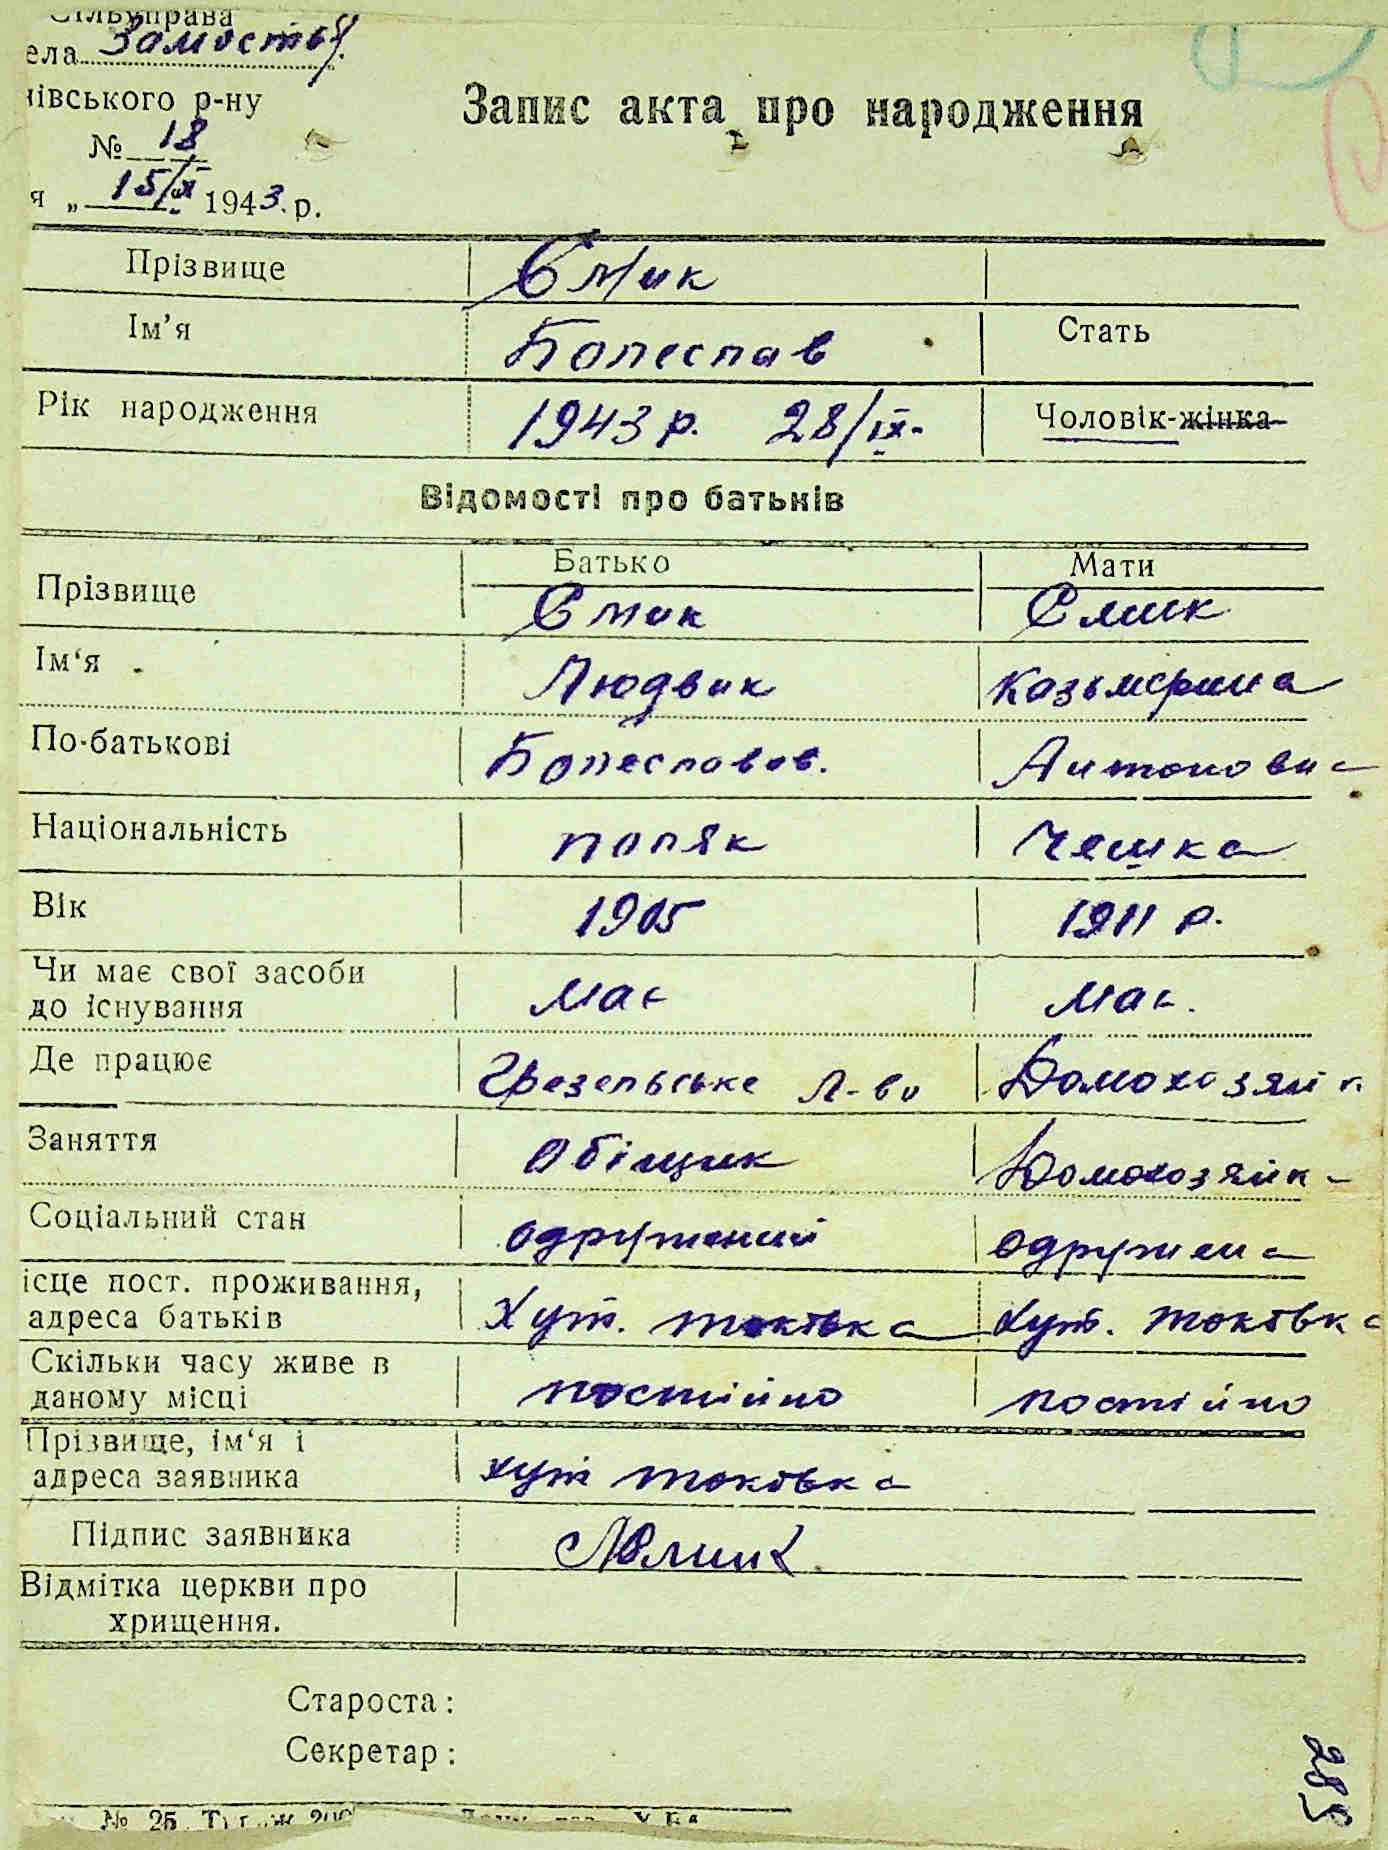 Сільуправа
ела Замостья
нівського р-ну
№ 18
я „ 15/X 1943. р.
Запис акта про народження
Прізвище Смик
Ім’я Болеслав Стать
Рік народження 1943 р. 28/IX. Чоловік-жінка
Відомості про батьків
Батько Мати
Прізвище Смик Смик
Ім‘я Людвик Казьмерина
По-батькові Болеславов. Антоновна
Національність поляк Чешка
Вік 1905 1911 р.
Чи має свої засоби
до існування має має.
Де працює Грезельське л-во Домохозяйк
Заняття Обіщик Домохозяйка
Соціальний стан одружений одружена
ісце пост. проживання,
адреса батьків Хут. Токовка Хут. Токовка
Скільки часу живе в
даному місці постійно постійно
Прізвище, ім‘я і
адреса заявника хут Токовка
Підпис заявника
Відмітка церкви про
хрищення.
Староста:
Секретар:
285
№ 25